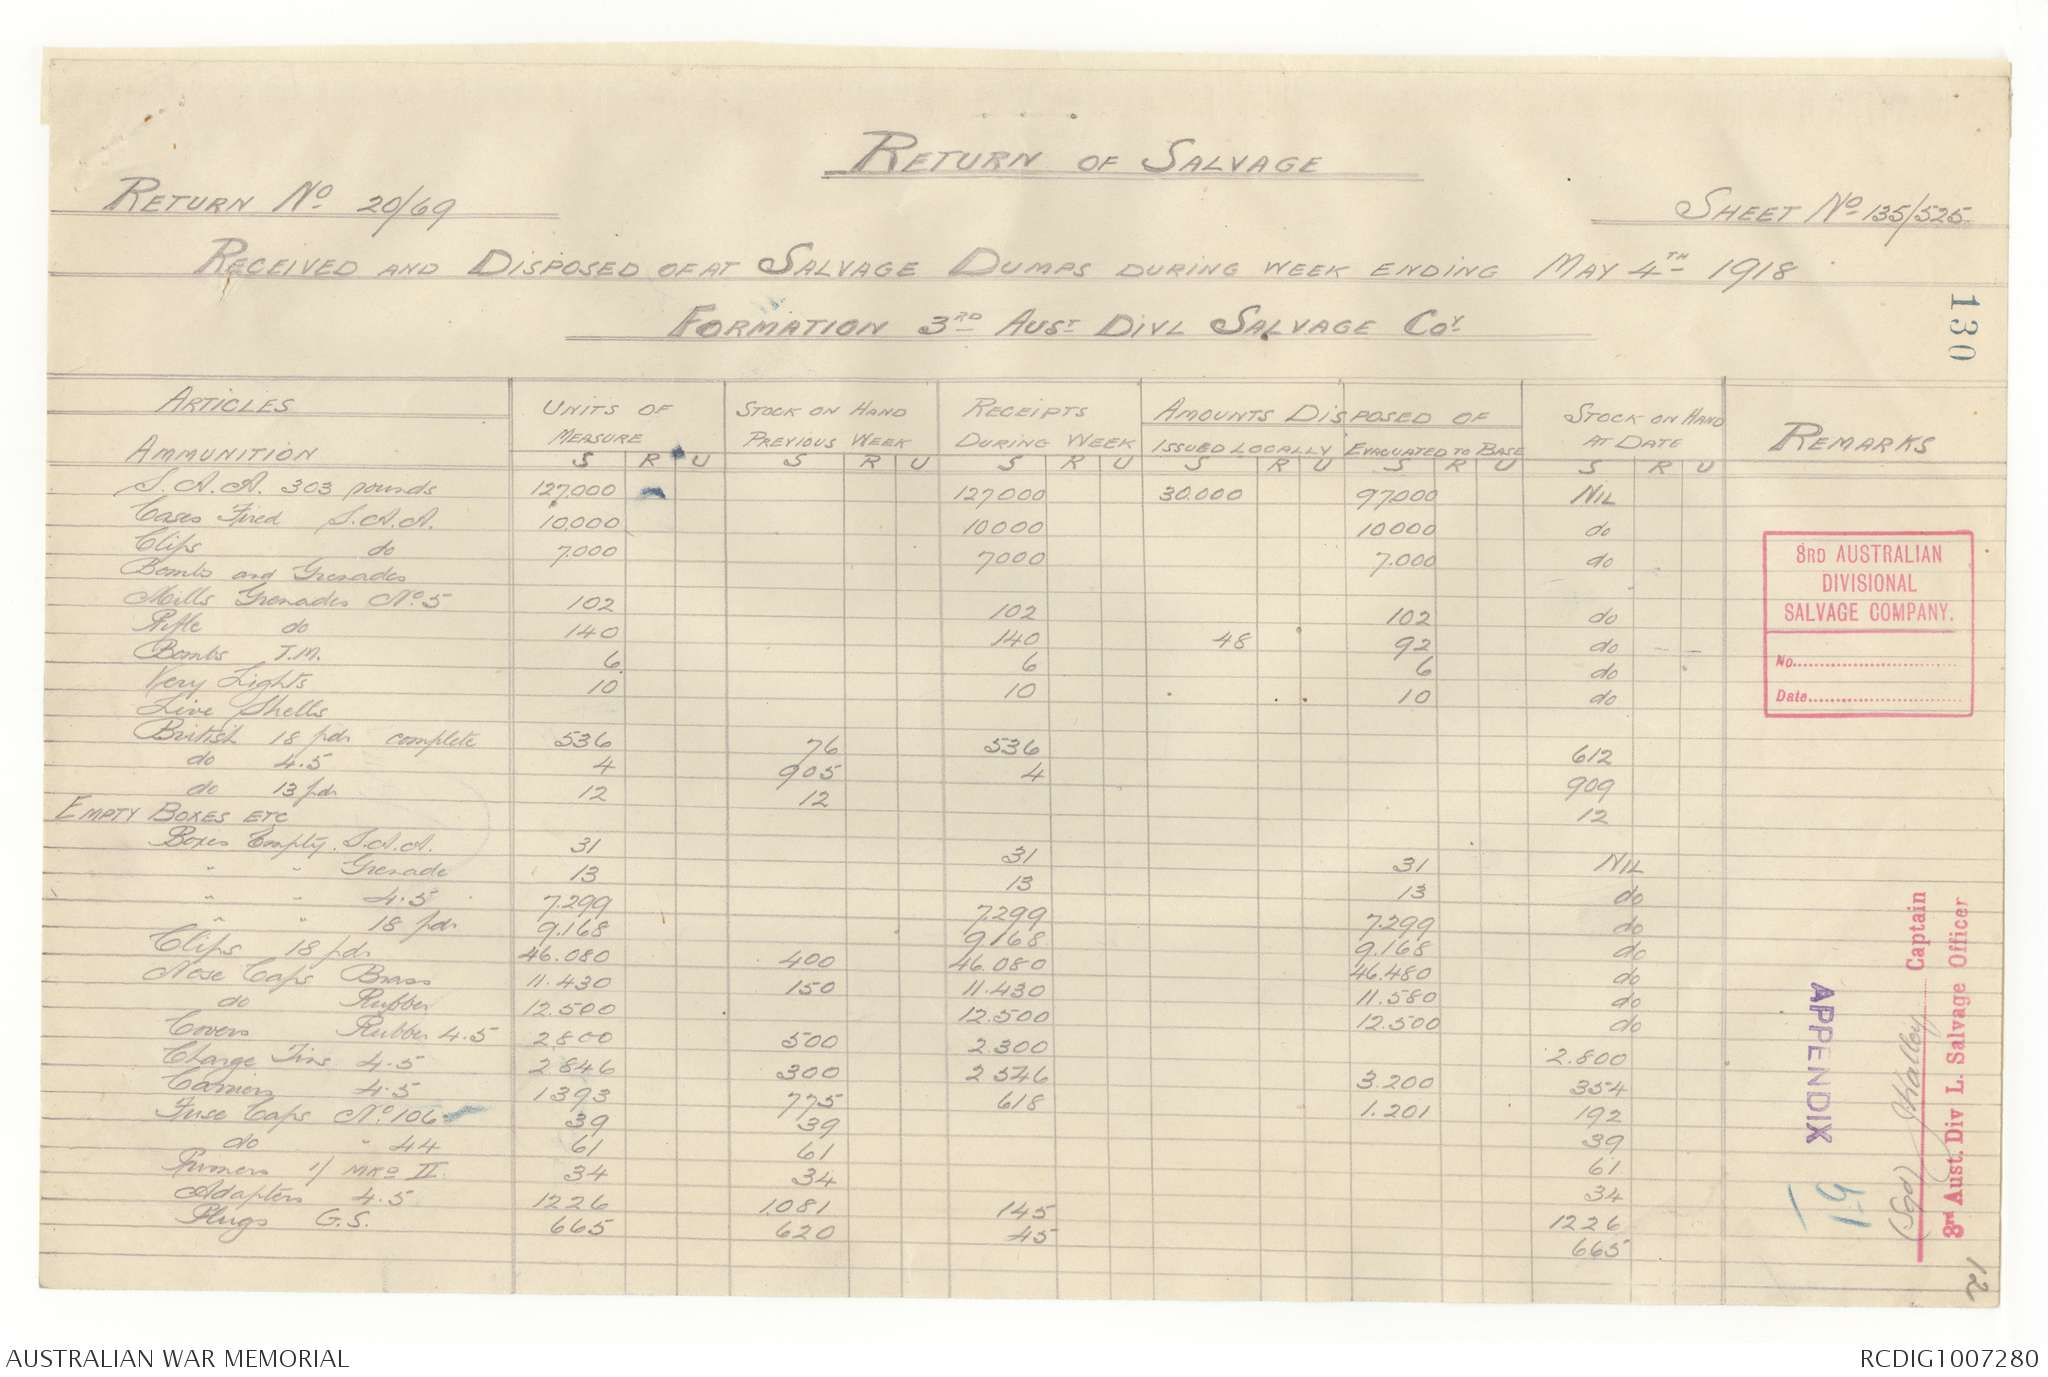 RETURN OF SALVAGE
RETURN No 20/69
SHEET No 135/525
RECEIVED AND DISPOSED OF AT SALVAGE DUMPS DURING WEEK ENDING MAY 4TH 1918
FORMATION 3RD AUST DIVL SALVAGE COY
130
ARTICLES UNITS OF MEASURE STOCK ON HAND PREVIOUS WEEK RECEIPTS DURING WEEK AMOUNTS DISPOSED OF STOCK ON HAND AT DATE REMARKS
ISSUED LOCALLY EVACUATED TO BASE
AMMUNITION S R U S R U S R U S R U S R U S R U
S.A.A. 303 pounds 127,000 127,000 30.000 97,000 NIL
Cases Fired S.A.A. 10,000 10000 10000 do
Clips do 7.000 7000 7.000 do
Bombs and Grenades
Mills Grenades No. 5 102 102 102 do
Rifle do 140 140 48 92 do
Bombs T.M. 6 6 6 do
Very Lights 10 10 10 do
Live Shells
British 18 pdr complete 536 76 536 612
do 4.5 4 905 4 909
do 13 pdr 12 12 12
EMPTY BOXES ETC
Boxes Empty. S.A.A. 31 31 31 NIL
" " Grenade 13 13 13 do
" " 4.5 7.299 7299 7.299 do
" " 18 pdr 9.168 9168 9.168 do
Clips 18 pdr 46.080 400 46.080 46.480 do
Nose Caps Brass 11.430 150 11.430 11.580 do
do Rubber 12.500 12.500 12.500 do
Covers Rubber 4.5 2800 500 2.300 2.800
Charge Tins 4.5 2846 300 2546 3.200 354
Carriers 4.5 1393 775 618 1.201 192
Fuse Caps No. 106 39 39 39
do " 44 61 61 61
Primers 1/ MKO II. 34 34 34
Adapters 4.5 1226 1.081 145 1226
Plugs G.S. 665 620 45 665
3RD AUSTRALIAN
DIVISIONAL
SALVAGE COMPANY.
No.
Date
APPENDIX
19
(Sgd) Captain
3rd Aust. Div L. Salvage Officer
12
AUSTRALIAN WAR MEMORIAL
RCDIG1007280